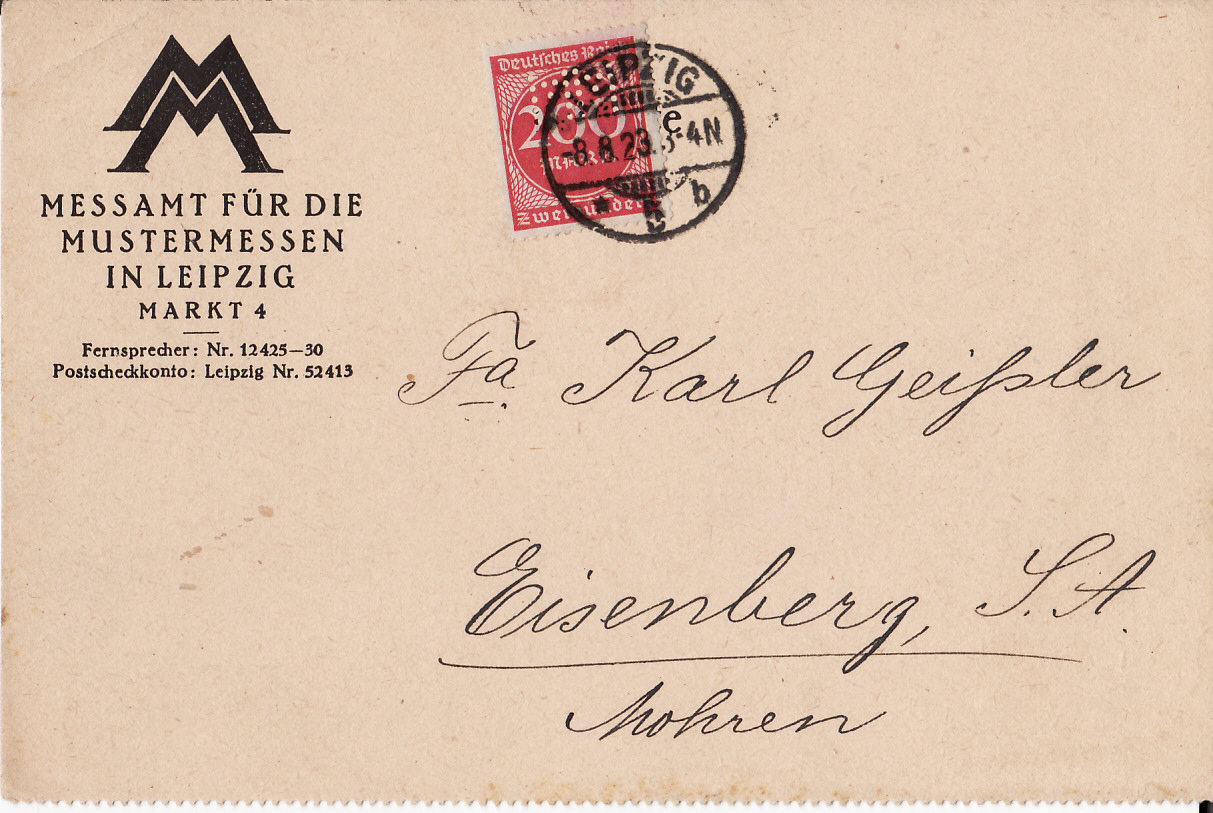 MESSAMT FÜR DIE
MUSTERMESSEN
IN LEIPZIG
MARKT 4
Fernsprecher: Nr. 12425—30
Postscheckkonto: Leipzig Nr. 52413
Deutsches Reich
200
MARK
Zweihundert
LEIPZIG
-8.8.23. 3-4N
* 5 b
Fa. Karl Geißler
Eisenberg, S. A.
Mohren